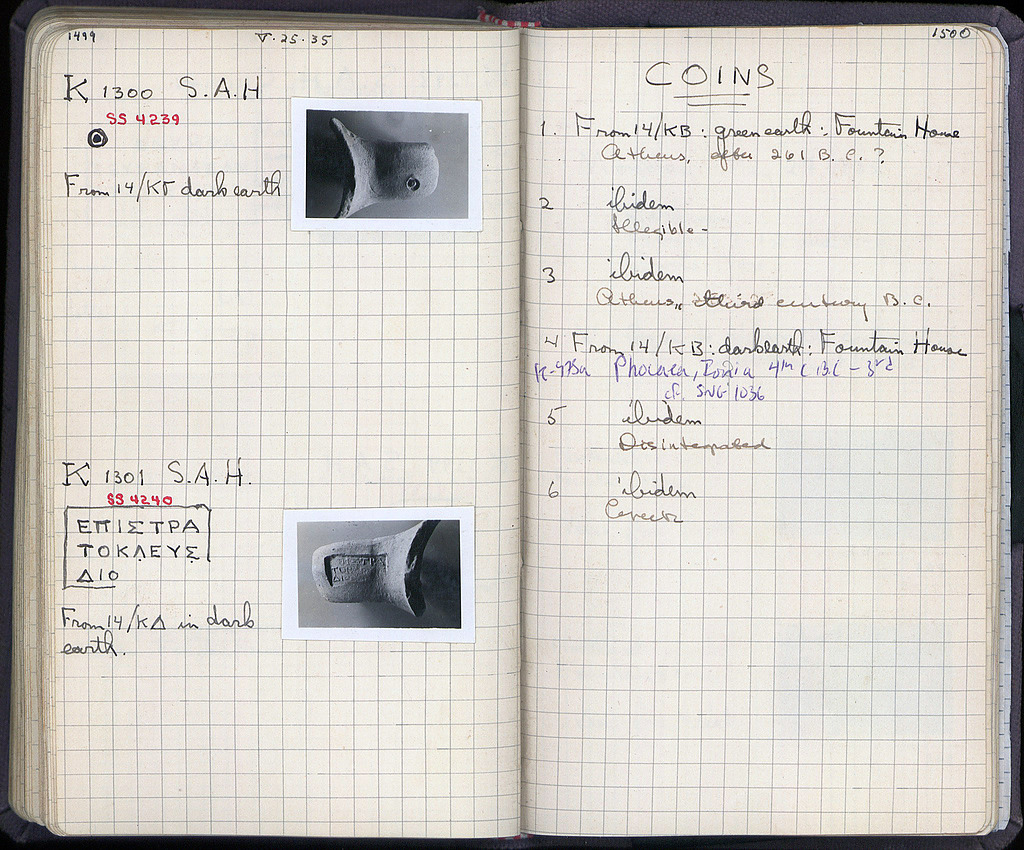 1499
V·25·35
K 1300 S.A.H
SS 4239
From 14/ΚΓ dark earth
K 1301 S.A.H.
SS 4240
ΕΠΙΣΤΡΑ
ΤΟΚΛΕΥΣ
ΔΙΟ
From 14/ΚΔ in dark
earth.
ΠΙΣΤΡΑ
ΤΟΚ
ΔΙΟ
1500
COINS
1. From 14/ΚΒ : green earth : Fountain House
Athens, after 261 B.C. ?
2 ibidem
Illegible -
3 ibidem
Athens, third century B.C.
4 From 14/ΚΒ : dark earth : Fountain House
Phocaea, Ionia 4th C BC - 3rd
cf. SNG 1036
5 ibidem
Disintegrated
6 ibidem